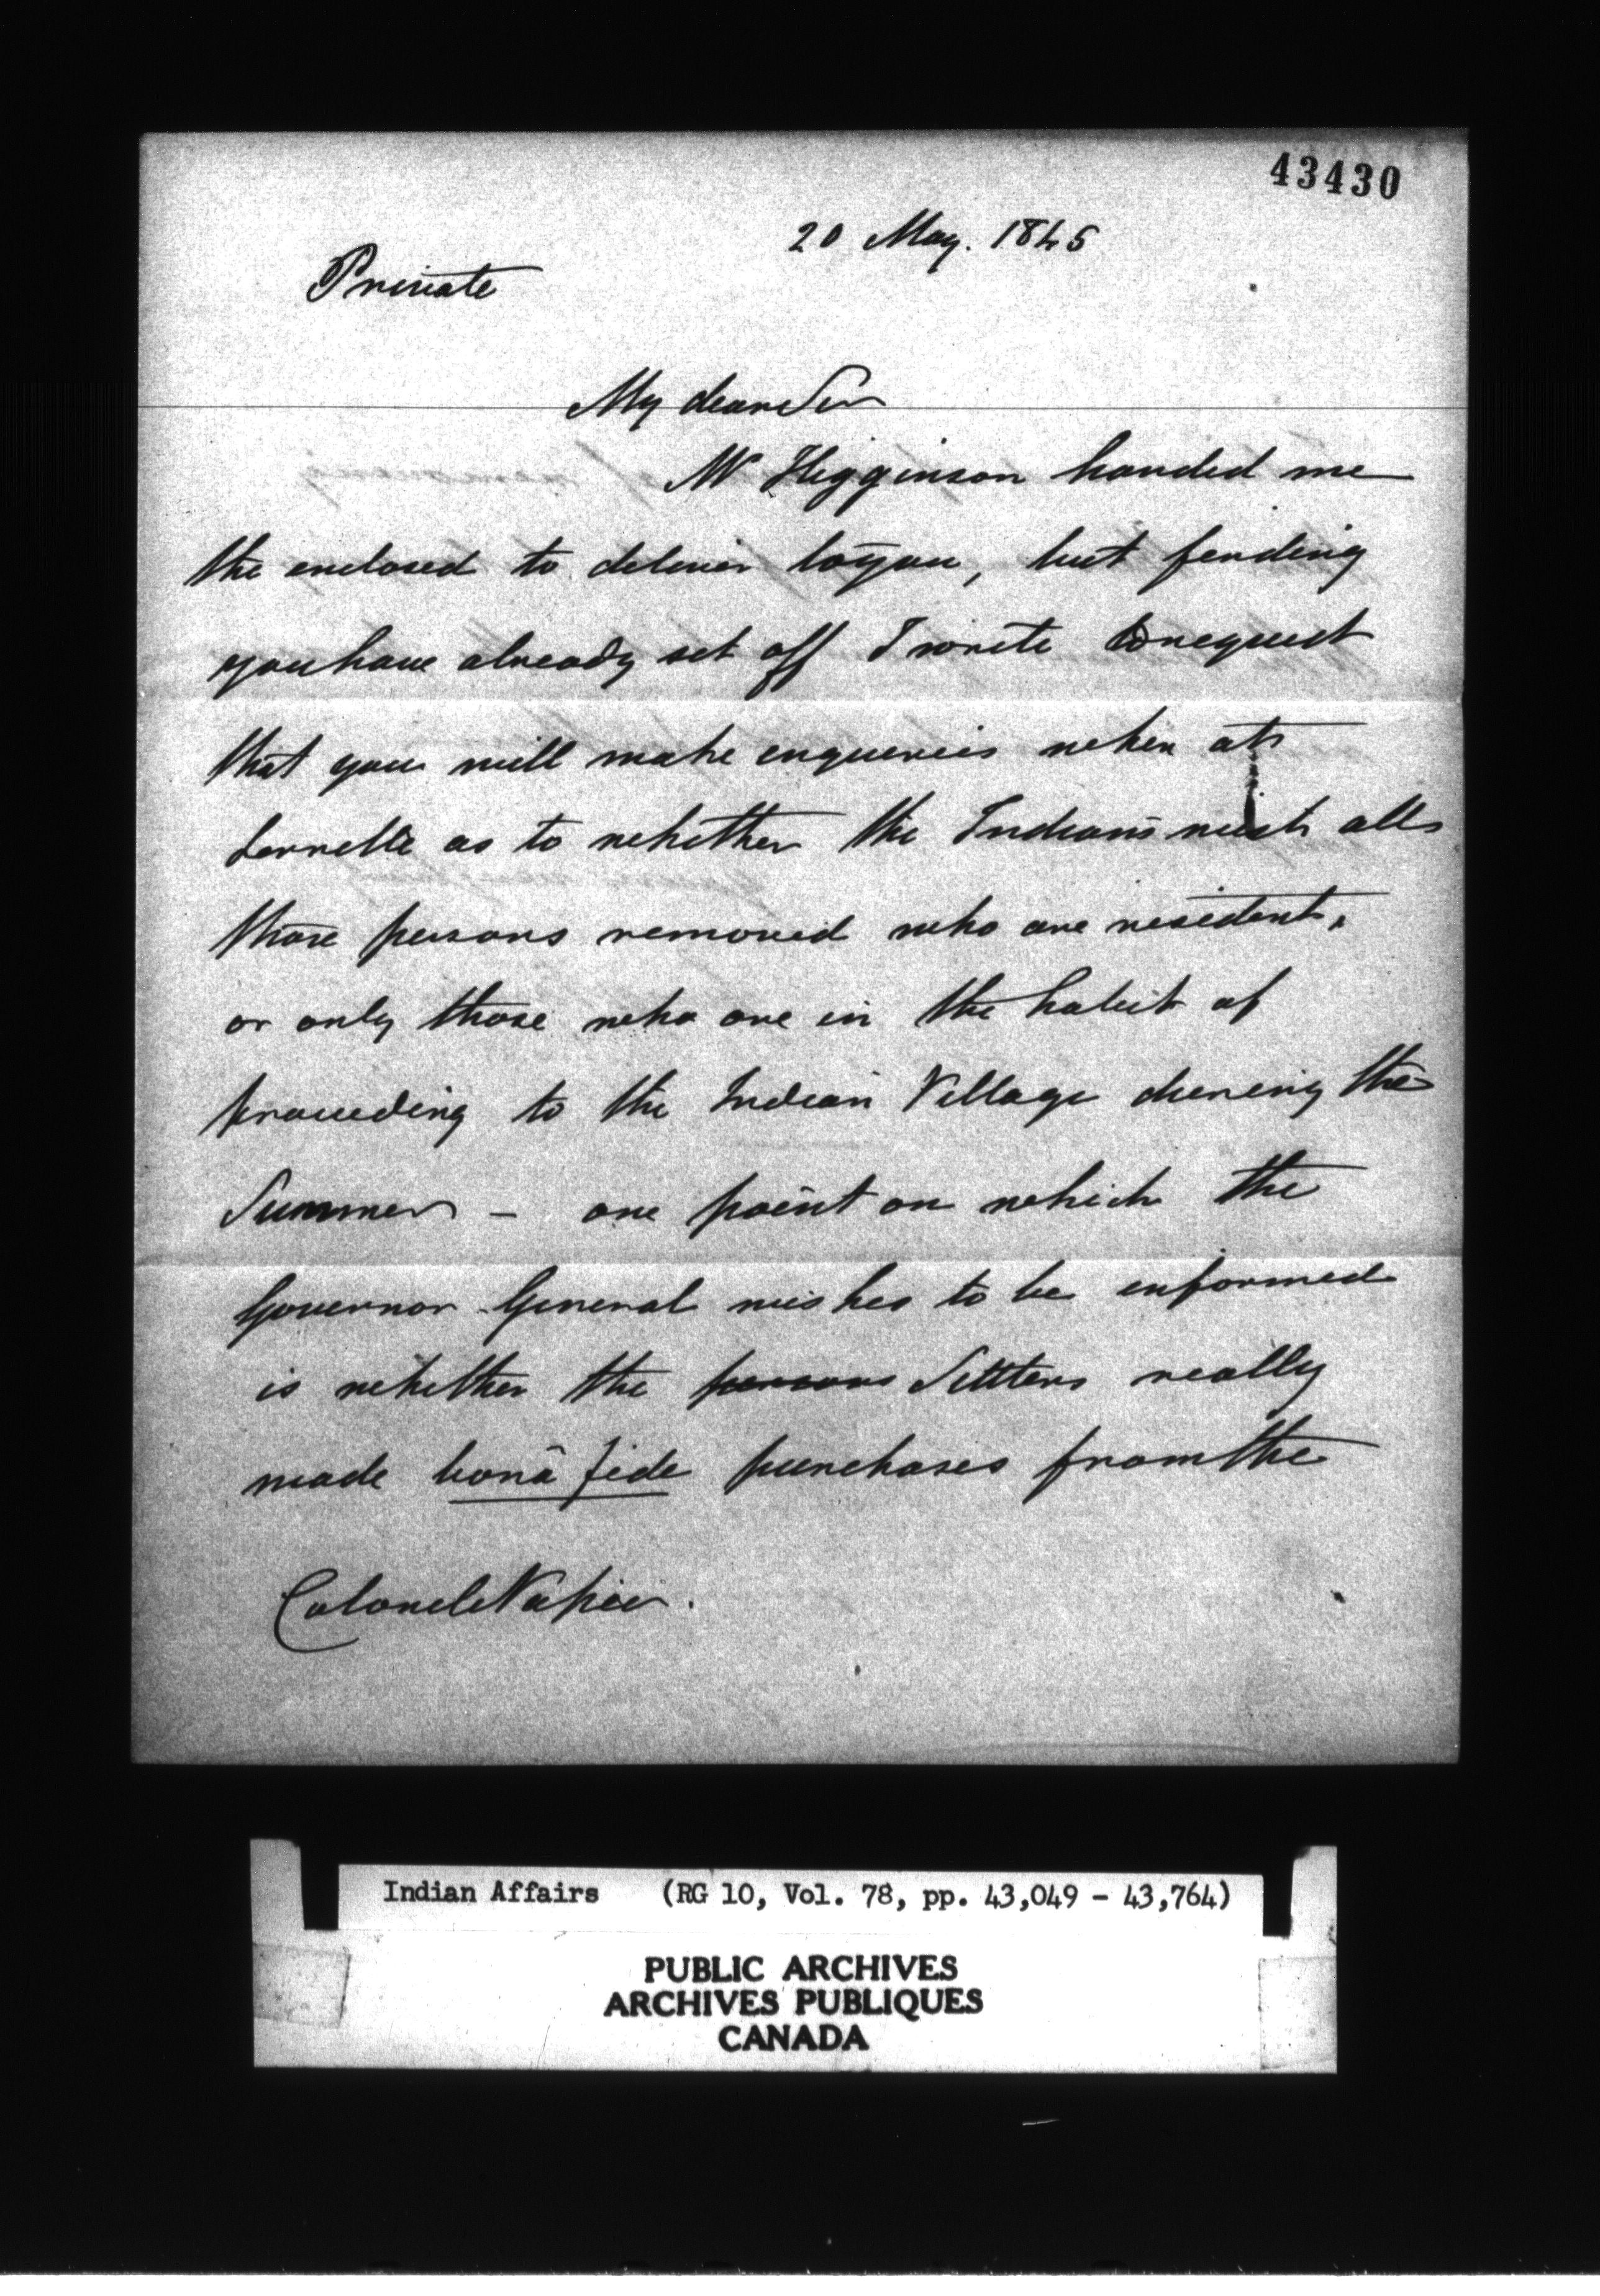 43430
20 May. 1845
Private
My dear Sir
Mr Higginson handed me
the enclosed to deliver to you, but finding
you have already set off I write to request
that you will make enquiries when at
Lorrette as to whether the Indians wish all
those persons removed who are resident,
or only those who are in the habit of
proceeding to the Indian Village during the
Summer - one point on which the
Governor General wishes to be informed
is whether the persons Settlers really
made bonâ fide purchases from the
Colonel Napier.
Indian Affairs (RG 10, Vol. 78, pp. 43,049 - 43,764)
PUBLIC ARCHIVES
ARCHIVES PUBLIQUES
CANADA